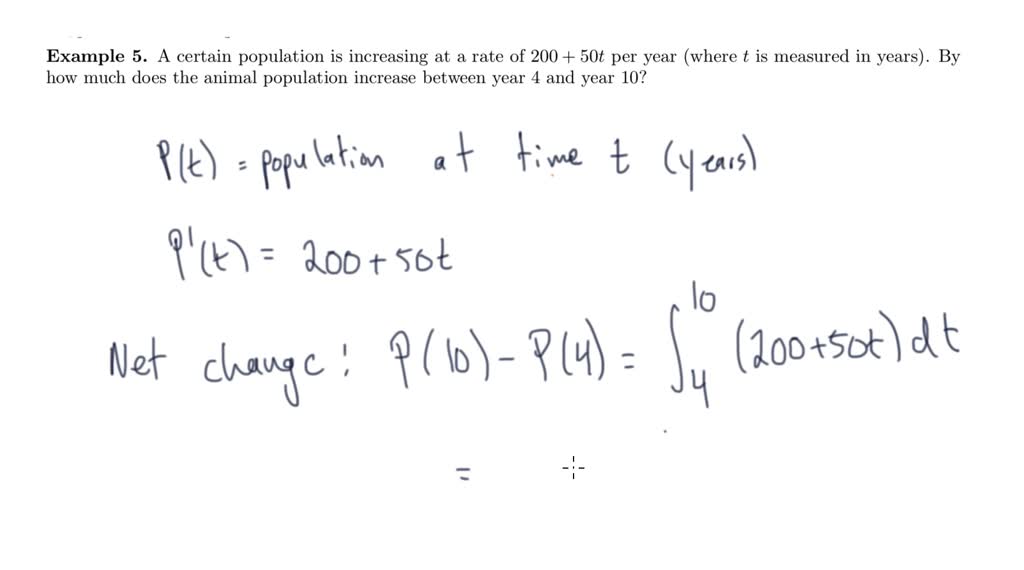 Example 5. A certain population is increasing at a rate of 200 + 50t per year (where t is measured in years). By
how much does the animal population increase between year 4 and year 10?
P(t) = population at time t (years)
P'(t) = 200 + 50t
Net change: P(10) - P(4) = ∫₄¹⁰ (200+50t) dt
=